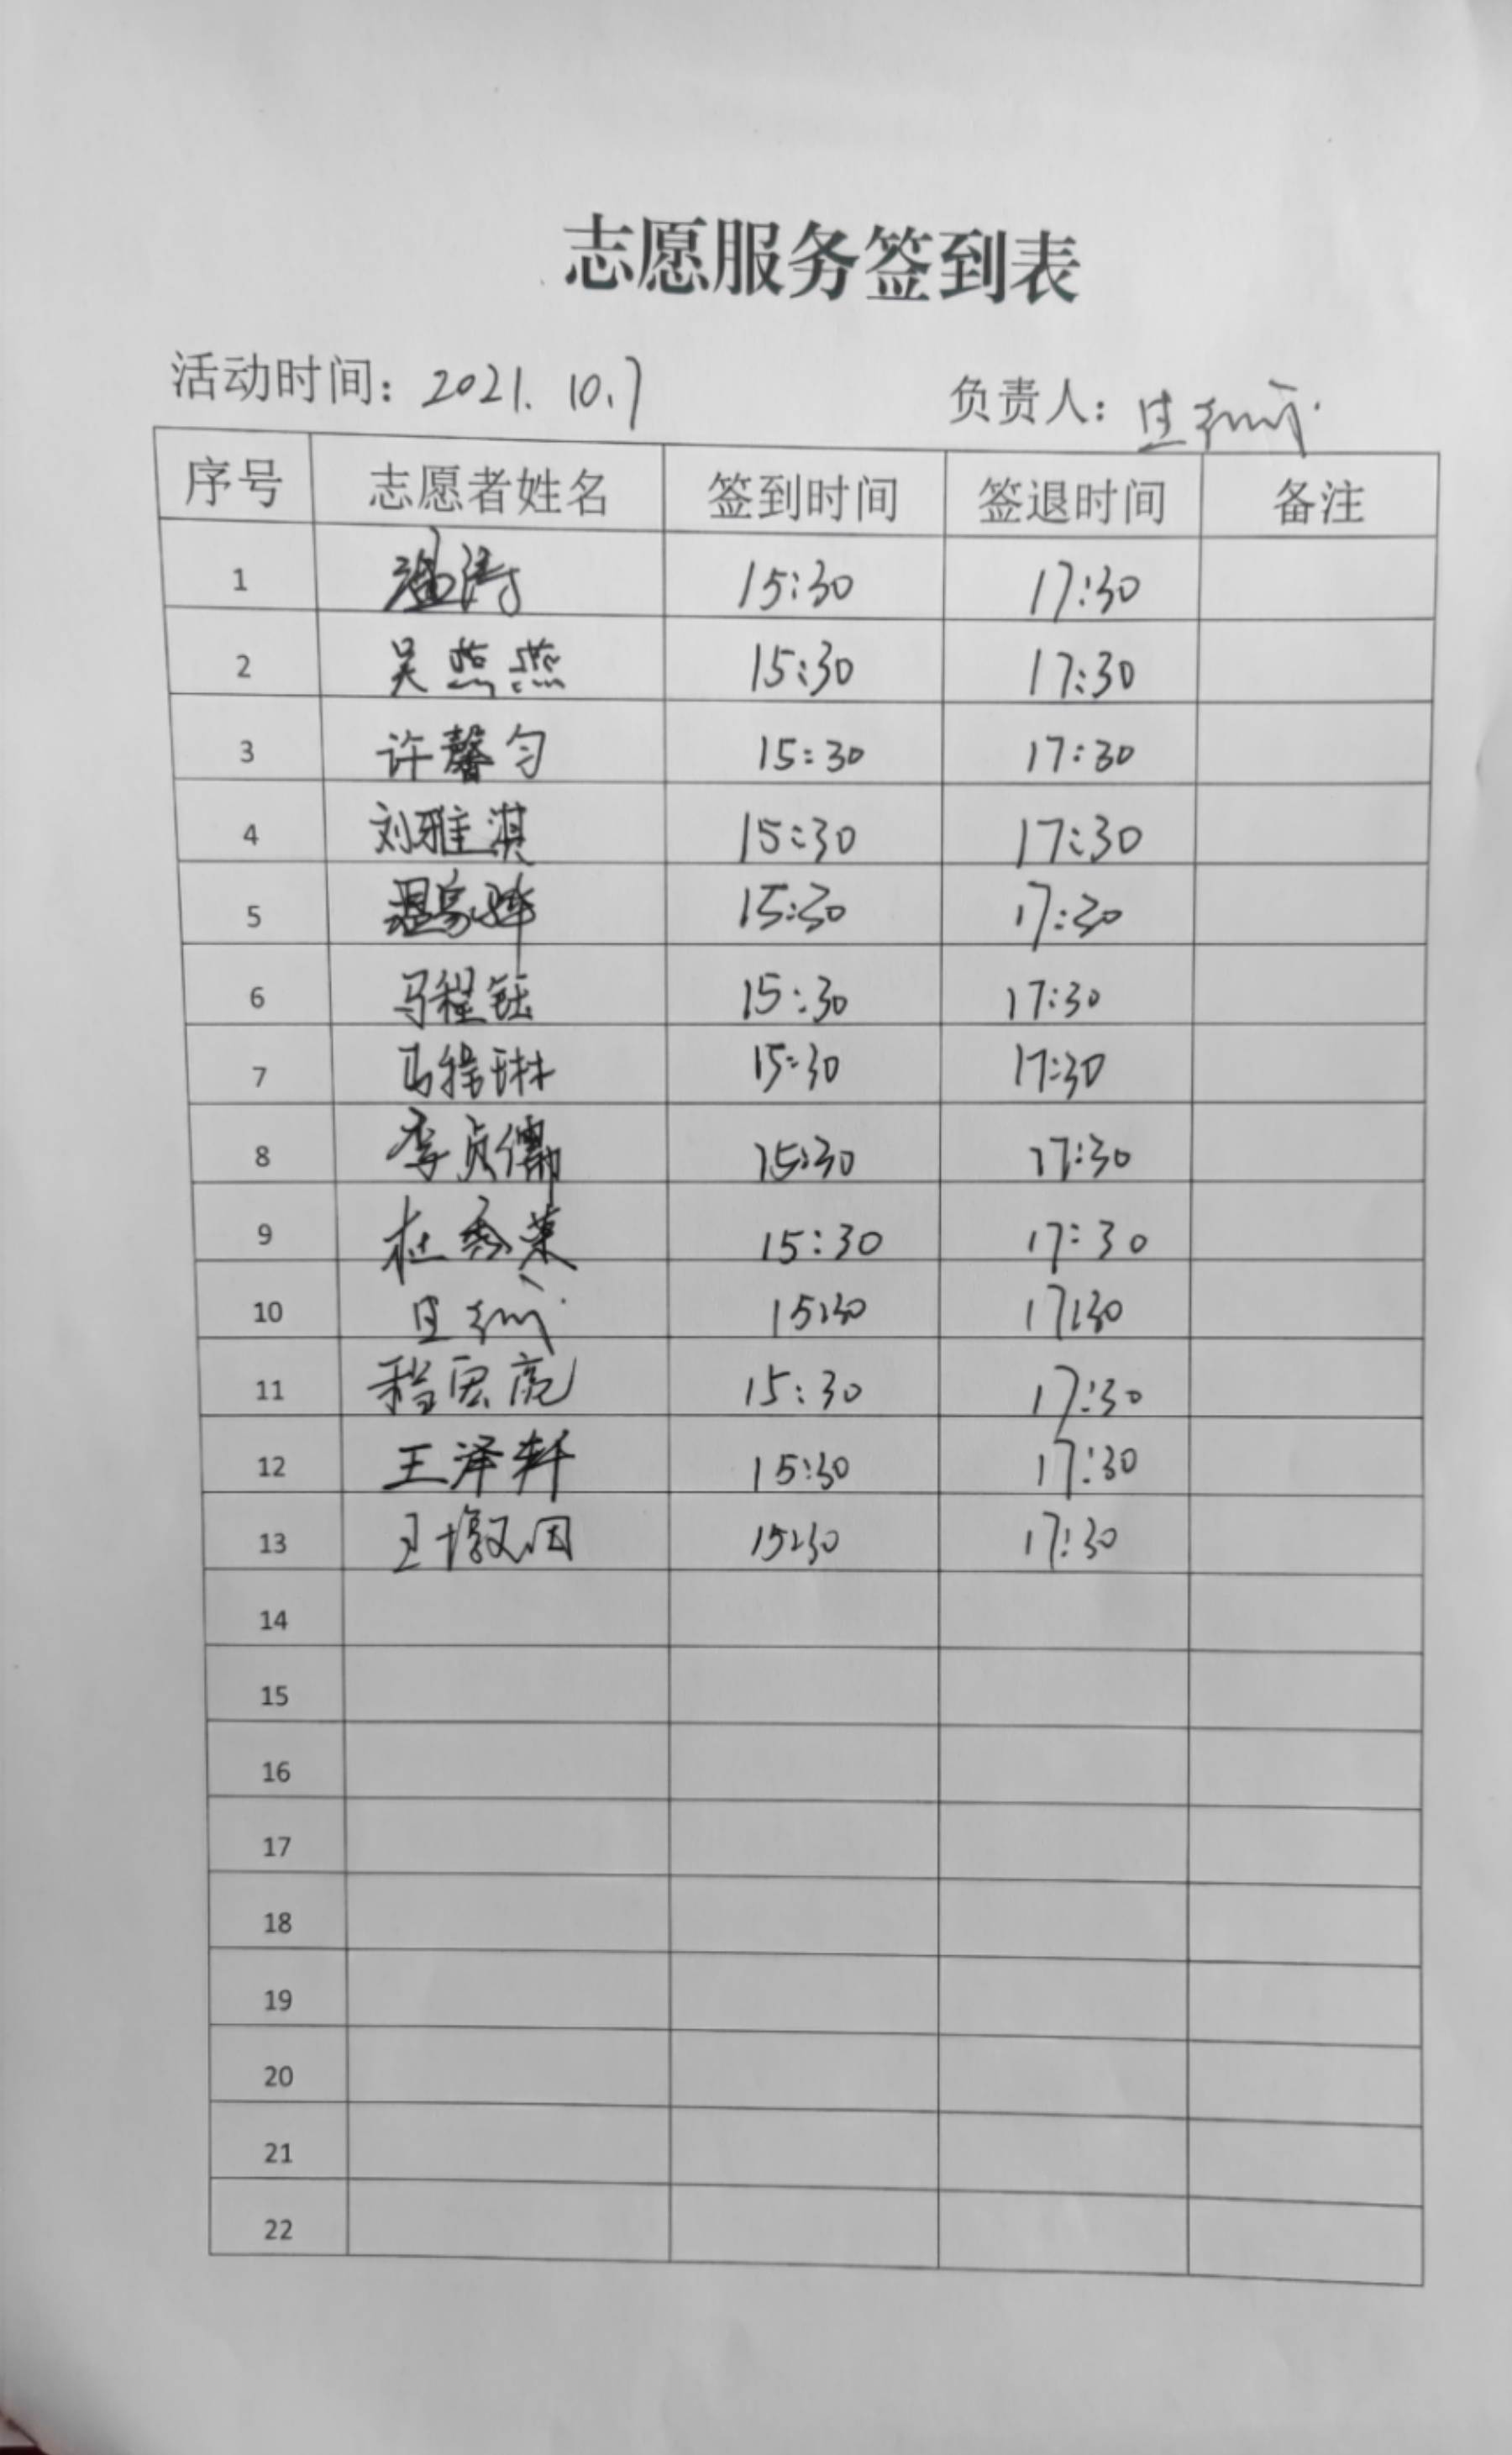 志愿服务签到表
活动时间: 2021.10.7 负责人:
序号 志愿者姓名 签到时间 签退时间 备注
1 15:30 17:30
2 吴燕燕 15:30 17:30
3 许馨匀 15:30 17:30
4 刘雅淇 15:30 17:30
5 15:30 17:30
6 马程钰 15:30 17:30
7 马 琳 15:30 17:30
8 李贞儒 15:30 17:30
9 杜 15:30 17:30
10 15:30 17:30
11 程 亮 15:30 17:30
12 王泽轩 15:30 17:30
13 王 15:30 17:30
14
15
16
17
18
19
20
21
22